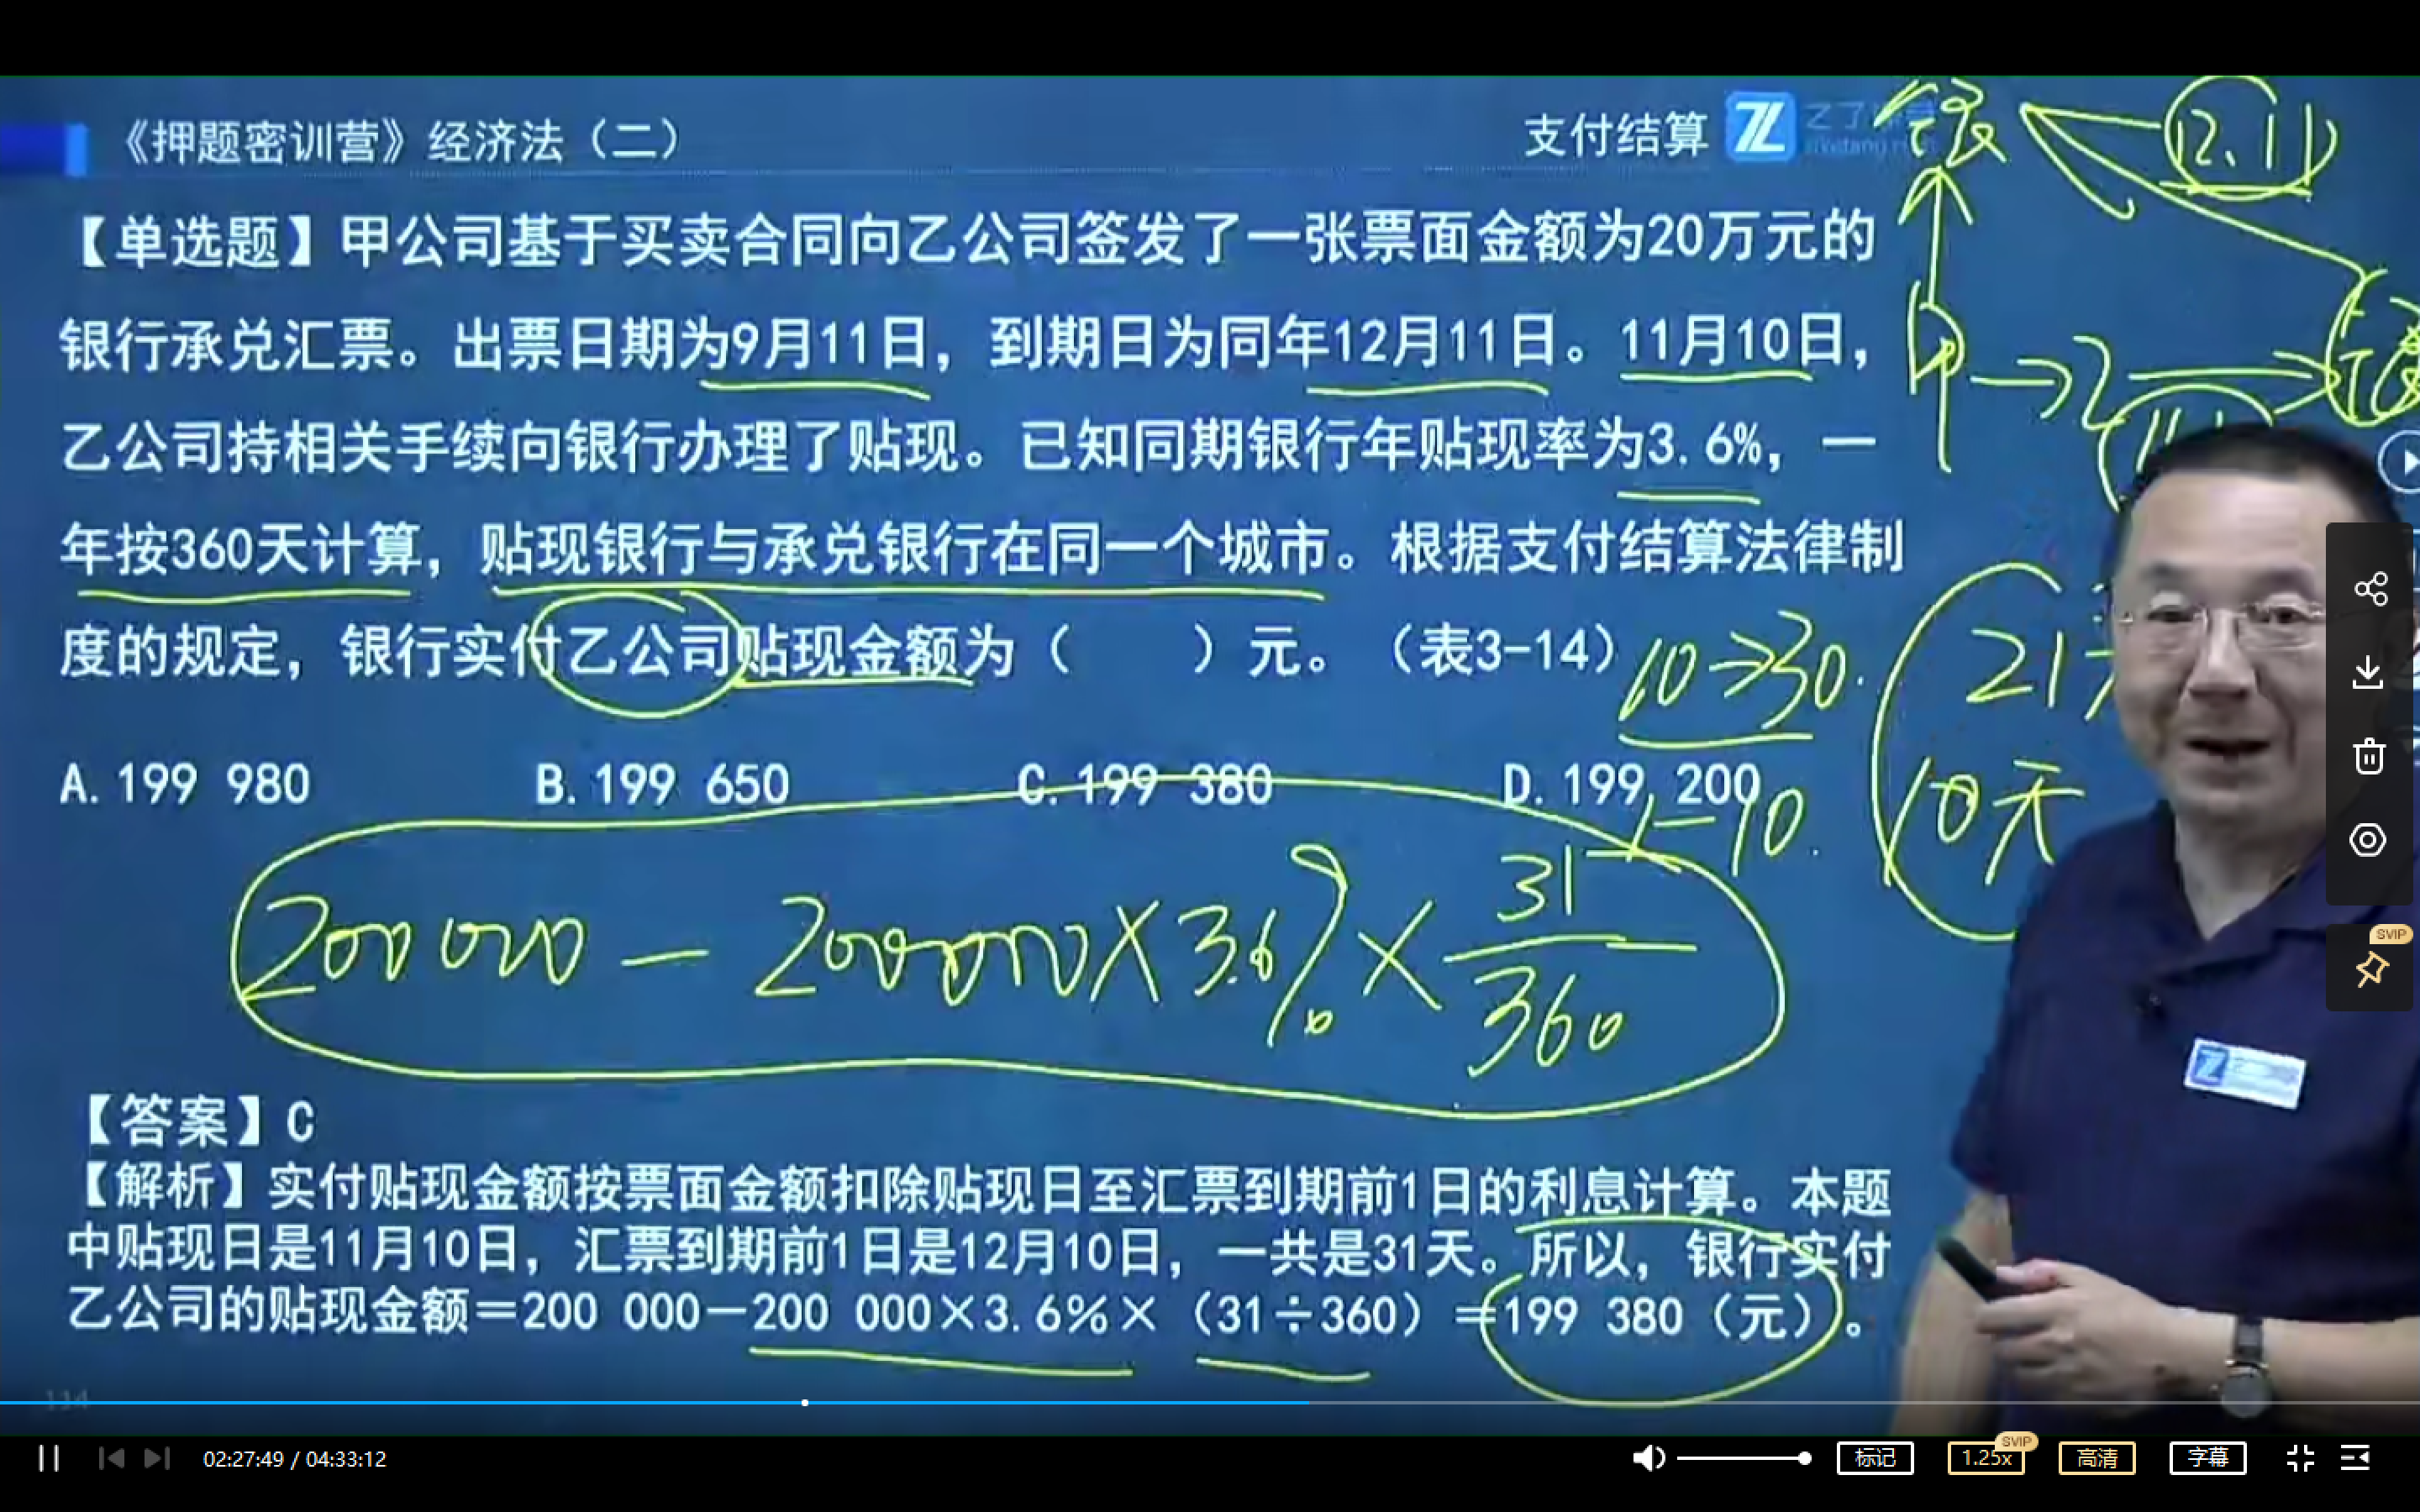 《押题密训营》经济法（二）
支付结算
12.11
【单选题】甲公司基于买卖合同向乙公司签发了一张票面金额为20万元的
银行承兑汇票。出票日期为9月11日，到期日为同年12月11日。11月10日，
甲→乙
乙公司持相关手续向银行办理了贴现。已知同期银行年贴现率为3.6%，一
年按360天计算，贴现银行与承兑银行在同一个城市。根据支付结算法律制
度的规定，银行实付乙公司贴现金额为（ ）元。（表3-14）
10→30.
21
A.199 980 B.199 650 C.199 380 D.199 200
1-10.
10天
200000-200000×3.6%×31/360
【答案】C
【解析】实付贴现金额按票面金额扣除贴现日至汇票到期前1日的利息计算。本题
中贴现日是11月10日，汇票到期前1日是12月10日，一共是31天。所以，银行实付
乙公司的贴现金额＝200 000－200 000×3.6％×（31÷360）＝199 380（元）。
114
02:27:49 / 04:33:12
标记
1.25x
SVIP
高清
字幕
SVIP